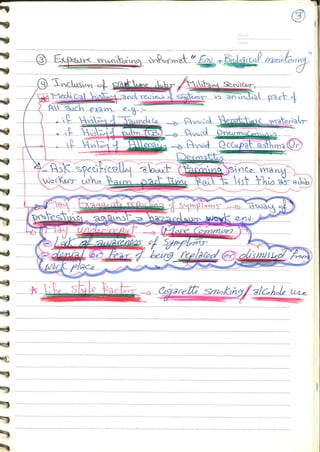 3
③ Exposure monitoring informat. "Env. + Biological monitoring"
④ Inclusion of part time jobs / Military Services.
Medical history and review of systems is an initial part of
All such exam e.g:-
. if History of Jaundice → Avoid Hepatotoxic materials
. if History of pulm. → Avoid Pneumoconiosis
. if History of Allergies → Avoid Occupat. asthma Or
Dermatitis
- Ask specifically about Farming since many
workers who Farm part time Fail to list this as a job
- May Exaggerate reporting of symptoms → away of
protesting against a hazardous work env.
- May underreport → More Common
- Lack of awareness of Symptoms
- denial or Fear of being replaced or dismissed from
work place
* life style Factor → Cigarette smoking / alcohole use